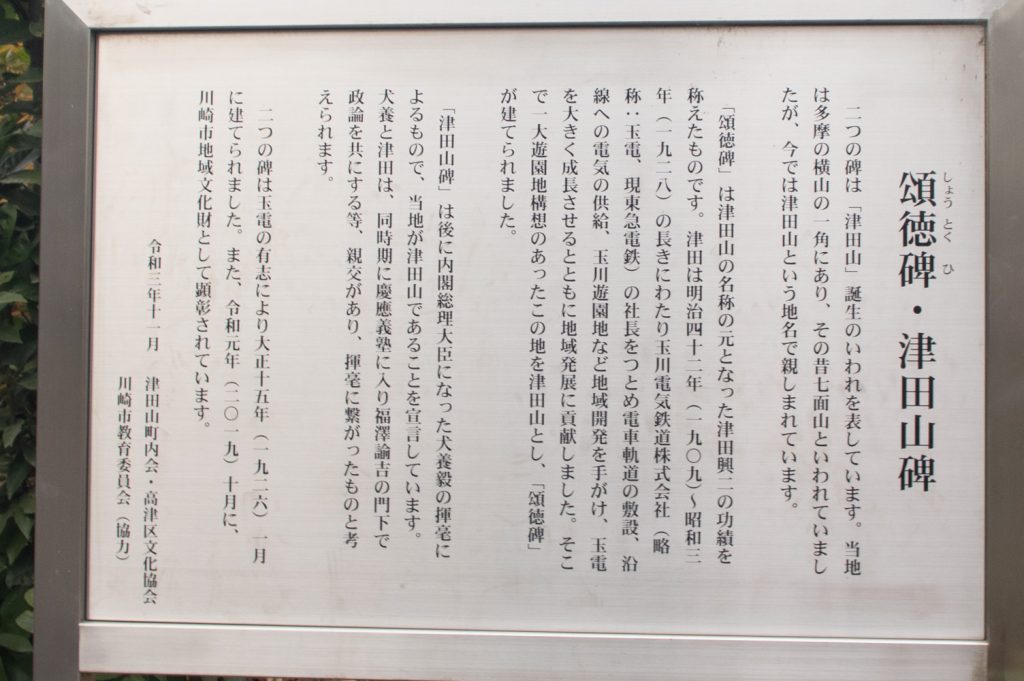 しょうとくひ
頌徳碑・津田山碑
二つの碑は「津田山」誕生のいわれを表しています。当地
は多摩の横山の一角にあり、その昔七面山といわれていまし
たが、今では津田山という地名で親しまれています。
「頌徳碑」は津田山の名称の元となった津田興二の功績を
称えたものです。津田は明治四十二年（一九〇九）～昭和三
年（一九二八）の長きにわたり玉川電気鉄道株式会社（略
称：玉電、現東急電鉄）の社長をつとめ電車軌道の敷設、沿
線への電気の供給、玉川遊園地など地域開発を手がけ、玉電
を大きく成長させるとともに地域発展に貢献しました。そこ
で一大遊園地構想のあったこの地を津田山とし、「頌徳碑」
が建てられました。
「津田山碑」は後に内閣総理大臣になった犬養毅の揮毫に
よるもので、当地が津田山であることを宣言しています。
犬養と津田は、同時期に慶應義塾に入り福澤諭吉の門下で
政論を共にする等、親交があり、揮毫に繋がったものと考
えられます。
二つの碑は玉電の有志により大正十五年（一九二六）一月
に建てられました。また、令和元年（二〇一九）十月に、
川崎市地域文化財として顕彰されています。
令和三年十一月　津田山町内会・高津区文化協会
川崎市教育委員会（協力）